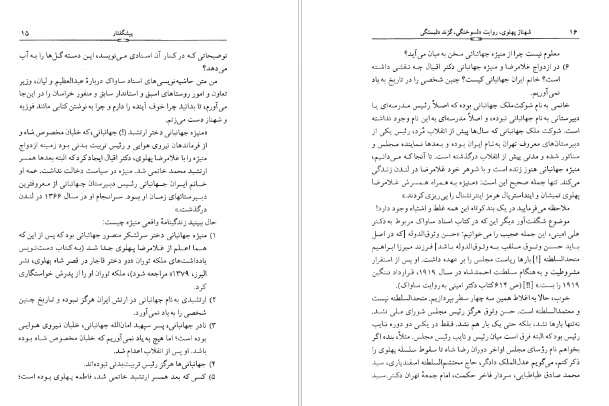 ۱۶    شهناز پهلوی، روایت دلسوختگی، گزند دلبستگی
معلوم نیست چرا از منیژه جهانبانی سخن به میان می‌آید؟
۶) در ازدواج غلامرضا و منیژه جهانبانی دکتر اقبال چه نقشی داشته
است؟ خانم ایران جهانبانی کیست؟ چنین شخصی را در تاریخ به یاد
نمی‌آوریم.
خانمی به نام شوکت‌ملک جهانبانی که اصلاً رئیس مدرسه‌ای یا
دبیرستانی به نام جهانبانی نبوده، و اصلاً مدرسه‌ای به این نام وجود نداشته
است. شوکت ملک جهانبانی که سال‌ها پیش از انقلاب مُرد، رئیس یکی از
دبیرستان‌های معروف تهران به‌نام ایران بوده و بعدها نماینده مجلس و
سناتور شده و مدتی پیش از انقلاب درگذشته است. تا آنجا که می‌دانیم،
منیژه جهانبانی هنوز زنده است و با شوهر خود غلامرضا در لندن زندگی
می‌کند. تنها جمله صحیح این است: «منیژه به همراه همسرش غلامرضا
پهلوی تمیشان و اینداستریال هرمز اینترنشنال را پی‌ریزی کردند.»
ملاحظه می‌فرمایید در یک بند کوتاه این همه غلط و اشتباه وجود دارد!
موضوع شگفت‌آور دیگر این که در کتاب اسناد ساواک مربوط به دکتر
علی امینی، این جمله عجیب را می‌خوانیم: «حسن وثوق‌الدوله [که در اصل
باید حسن وثوق ملقب به وثوق‌الدوله باشد] فرزند میرزا ابراهیم
متحدالسلطنه [!] بارها ریاست مجلس را بر عهده داشت. او پس از استقرار
مشروطیت و به‌هنگام سلطنت احمدشاه در سال ۱۹۱۹، قرارداد ننگین
۱۹۱۹ را بست.» [!!] (ص ۶۱۴ کتاب دکتر امینی به روایت ساواک).
خوب، حالا به اغلاط همین سه چهار سطر بپردازیم. متحدالسلطنه نیست
و معتمدالسلطنه است. حسن وثوق هرگز رئیس مجلس شورای ملی نشد.
نه‌تنها بارها نشد، بلکه حتی یک بار هم نشد. فقط در یکی دو دوره نایب
رئیس بود که البته فرق است میان رئیس و نایب رئیس مجلس. مثلاً بنده اگر
بخواهم نام رؤسای مجلس اواخر دوران رضا شاه تا سقوط سلسله پهلوی را
ذکر کنم، می‌گویم عدل‌الملک دادگر، حاج محتشم‌السلطنه اسفندیاری، سید
محمد صادق طباطبایی، سردار فاخر حکمت، امام جمعهٔ تهران دکتر سید
پیشگفتار    ۱۵
توضیحاتی که در کنار آن اسنادی می‌نویسد، این دسته گل‌ها را به آب
می‌دهند.
من متن حاشیه‌نویسی‌های اسناد ساواک دربارهٔ عبدالعظیم و لیان، وزیر
تعاون و امور روستاهای اسبق و استاندار سابق و منفور خراسان را در این‌جا
می‌آورم، تا بدانید چرا خوف آینده را دارم و چرا به نوشتن کتابی مانند فوزیه
و شهناز دست می‌زنم.
«منیژه جهانبانی دختر ارتشبد (!) جهانبانی، که خلبان مخصوص شاه و
از فرماندهان نیروی هوایی و رئیس تربیت بدنی بود زمینه ازدواج
منیژه را با غلامرضا پهلوی، دکتر اقبال ایجاد کرد که البته بعدها همسر
ارتشبد محمد خاتمی شد. منیژه در سیاست دخالت نداشت، عمه او
خانم ایران جهانبانی رئیس دبیرستان جهانبانی از معروفترین
دبیرستان‌های زمان او بود. سرانجام او در سال ۱۳۶۶ در لندن
درگذشت.»
حال ببینید زندگینامهٔ واقعی منیژه چیست:
۱) منیژه جهانبانی دختر سرلشکر منصور جهانبانی بود که پس از این که
هما اعلم از غلامرضا پهلوی جدا شد (به کتاب دست‌نویس
یادداشت‌های ملکه توران «دو دختر قاجار در قصر شاه پهلوی، نشر
البرز، ۱۳۷۹» مراجعه شود)، ملکه توران او را برای پسرش خواستگاری
کرد.
۲) ارتشبدی به نام جهانبانی در ارتش ایران هرگز نبوده و تاریخ چنین
شخصی را به یاد نمی‌آورد.
۳) نادر جهانبانی، پسر سپهبد امان‌الله جهانبانی، خلبان نیروی هوایی
بوده است؛ اما هیچ به یاد نمی‌آوریم که خلبان مخصوص شاه بوده
باشد. او پس از انقلاب اعدام شد.
۴) جهانبانی‌ها هرگز رئیس تربیت‌بدنی نبوده‌اند.
۵) کسی که بعد همسر ارتشبد خاتمی شد، فاطمه پهلوی بوده است؛